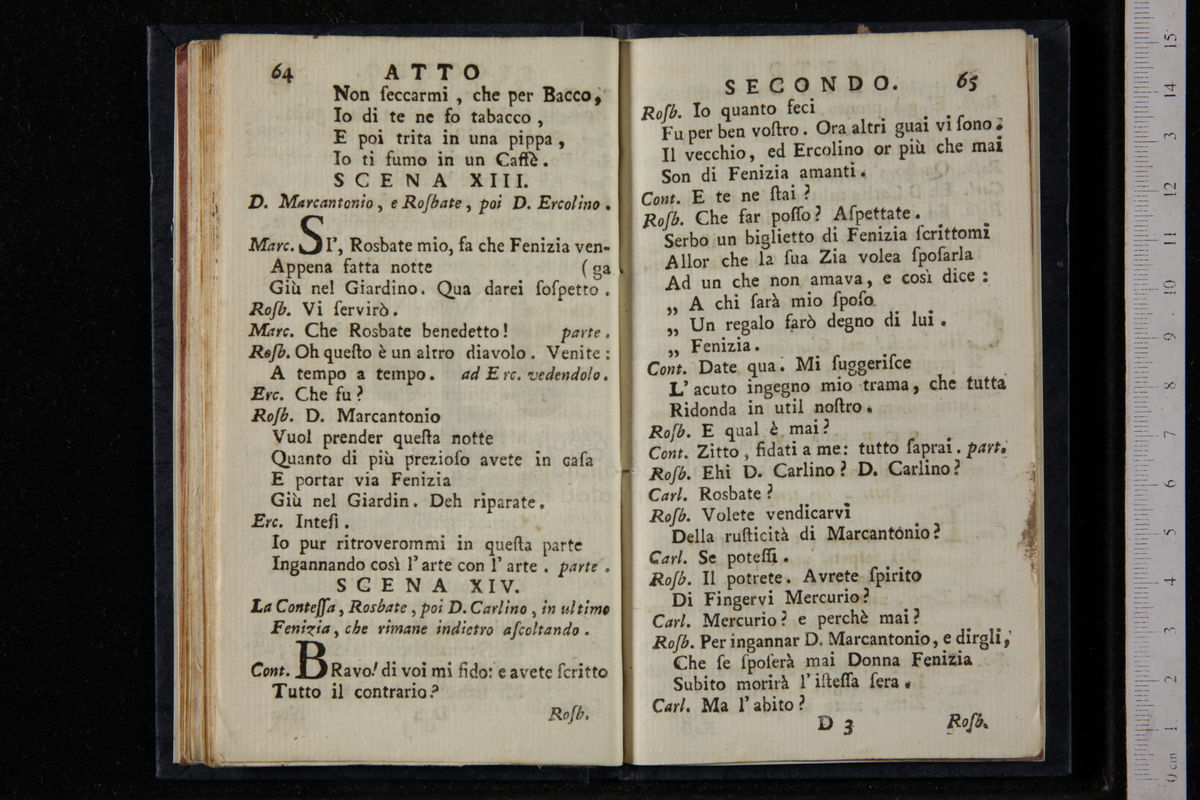 64 ATTO
Non ſeccarmi , che per Bacco,
Io di te ne fo tabacco ,
E poi trita in una pippa ,
Io ti fumo in un Caffè .
SCENA XIII.
D. Marcantonio , e Roſbate , poi D. Ercolino .
Marc. SI', Rosbate mio, fa che Fenizia ven-
Appena fatta notte (ga
Giù nel Giardino. Qua darei ſoſpetto .
Roſb. Vi ſervirò .
Marc. Che Rosbate benedetto! parte .
Roſb. Oh queſto è un altro diavolo . Venite :
A tempo a tempo. ad Erc. vedendolo .
Erc. Che fu ?
Roſb. D. Marcantonio
Vuol prender queſta notte
Quanto di più prezioſo avete in caſa
E portar via Fenizia
Giù nel Giardin. Deh riparate.
Erc. Inteſi .
Io pur ritroverommi in queſta parte
Ingannando così l'arte con l'arte . parte .
SCENA XIV.
La Conteſſa , Rosbate , poi D. Carlino , in ultimo
Fenizia , che rimane indietro aſcoltando .
Cont. BRavo! di voi mi fido: e avete ſcritto
Tutto il contrario?
Roſb.
SECONDO. 65
Roſb. Io quanto feci
Fu per ben voſtro. Ora altri guai vi ſono:
Il vecchio, ed Ercolino or più che mai
Son di Fenizia amanti.
Cont. E te ne ſtai ?
Roſb. Che far poſſo? Aſpettate.
Serbo un biglietto di Fenizia ſcrittomi
Allor che la ſua Zia volea ſpoſarla
Ad un che non amava, e così dice :
„ A chi ſarà mio ſpoſo
„ Un regalo farò degno di lui .
„ Fenizia .
Cont. Date qua. Mi ſuggeriſce
L'acuto ingegno mio trama, che tutta
Ridonda in util noſtro.
Roſb. E qual è mai?
Cont. Zitto , fidati a me: tutto ſaprai. part.
Roſb. Ehi D. Carlino? D. Carlino?
Carl. Rosbate ?
Roſb. Volete vendicarvi
Della ruſticità di Marcantonio?
Carl. Se poteſſi .
Roſb. Il potrete. Avrete ſpirito
Di Fingervi Mercurio?
Carl. Mercurio? e perchè mai?
Roſb. Per ingannar D. Marcantonio, e dirgli,
Che ſe ſpoſerà mai Donna Fenizia
Subito morirà l'iſteſſa ſera .
Carl. Ma l'abito ?
D 3 Roſb.
15
14
13
12
11
10
9
8
7
6
5
4
3
2
1
0 cm